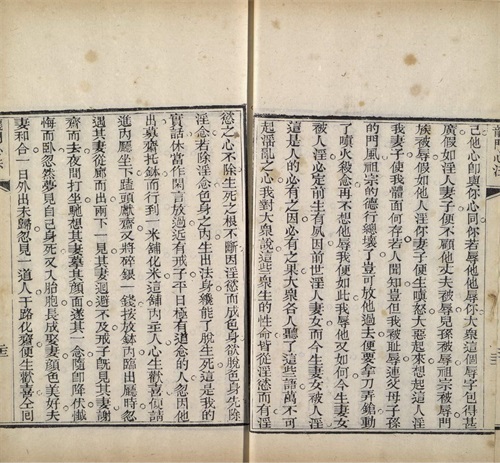 龍門心法
己他心卽與你心同你若辱他他辱你大衆這個辱字包得甚
廣假如淫人妻子便不顧他丈夫被辱兒孫被辱祖宗被辱門
族被辱假如他人淫你妻子便生嗔怒大惡起來想起這人淫
我妻子使我體面何存若人聞知豈但我被恥辱連父母子孫
的門風祖宗的德行總壞了豈可放他過去便要拿刀弄鎗動
了嗔火殺念再不想他辱我便如此我辱他又如何今生妻女
被人淫必定前生有夙因前世淫人妻女而今生妻女被人淫
這是人的必有之因必有之果大衆各人聽了這些語萬不可
起淫亂之心我對大衆說這些衆生的性命皆從淫慾而有淫
慾之心不除生死之根不斷因淫慾而成色身欲脫色身先除
淫念若除淫念色身之內生出法身纔能了脫生死這是我的
實話休當作閑言放過近有戒子平日極有道念的人忽因他
出募齋托鉢而行到一米鋪化米這鋪內主人心生歡喜便請
進內廳坐下跪頭獻齋又將碎銀一錢按放鉢內臨出廳時忽
遇其妻從廊而出兩下一見其妻迴避不及戒子旣見其妻謝
齋而去夜間打坐馳想其妻慕其顏面遂其一念隨卽降伏懺
悔而臥忽然夢見自己身死又入胎胞長成娶妻顏色美好夫
妻和合一日外出未歸忽見一道人于路化齋便生歡喜仝囘